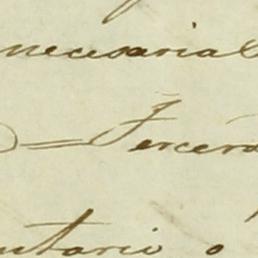 necesaria
= Tercera
utario o